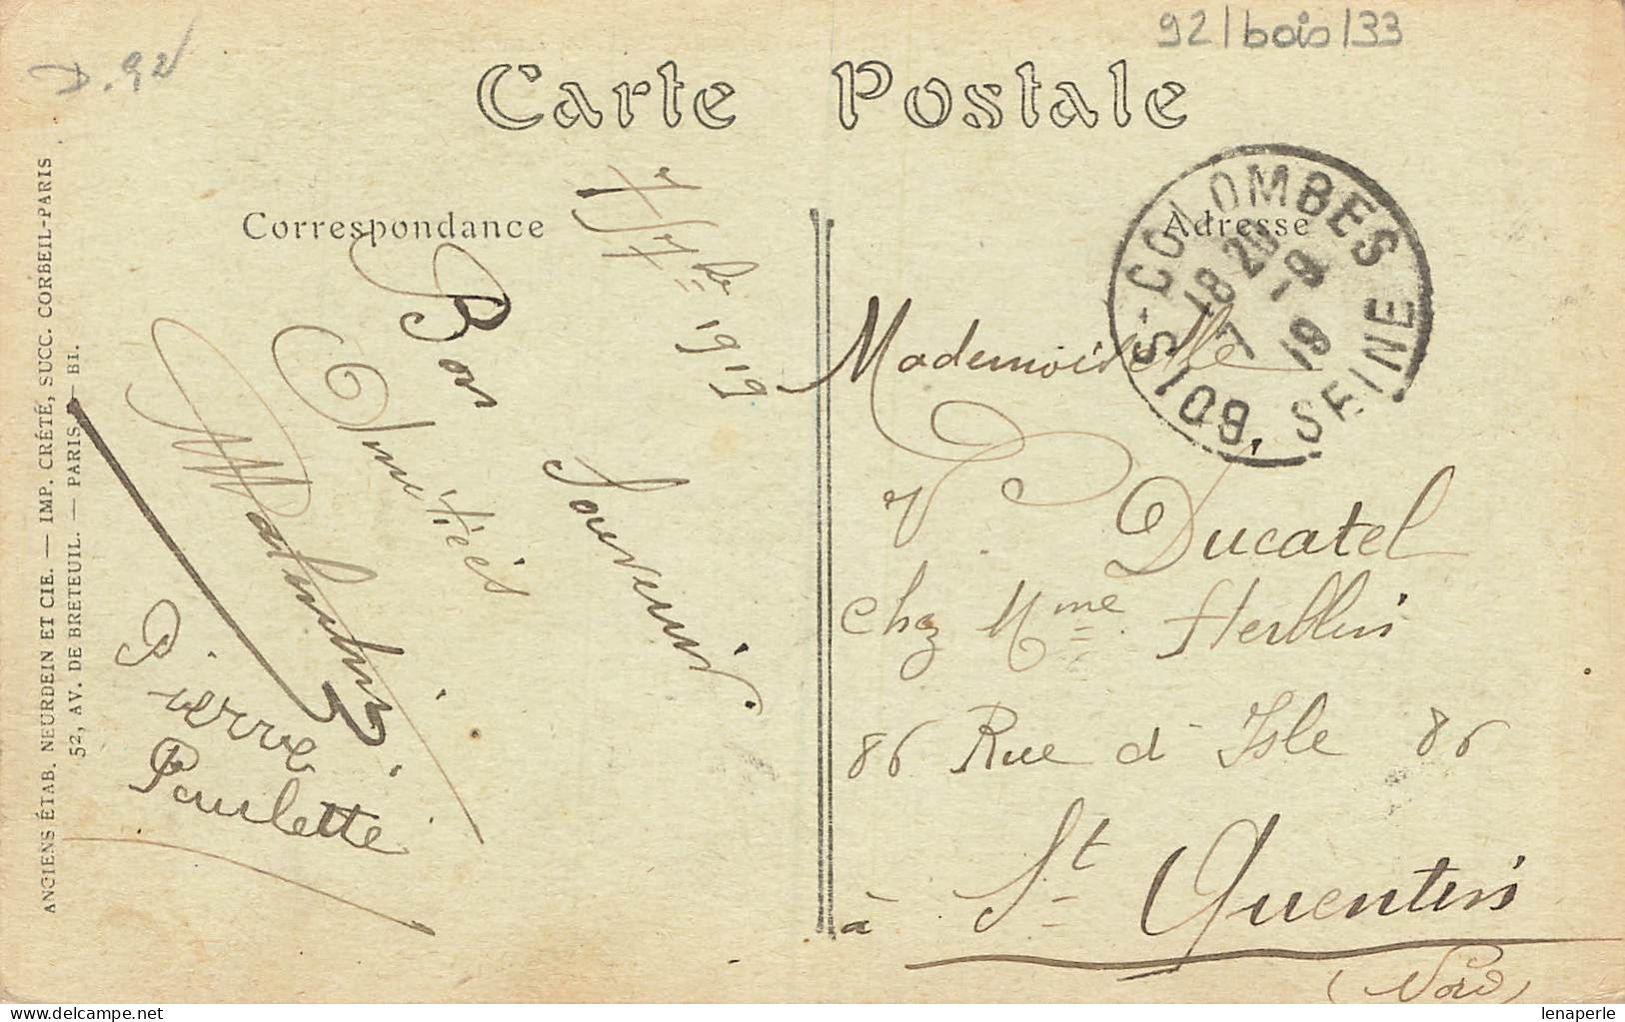 92/bois/33
D. 92
Carte Postale
Correspondance
Adresse
BOIS-COLOMBES
SEINE
18 20
7 -9
19
7/7bre 1919
Bon Souvenir.
Amitiés
Pierre
Paulette
Mademoiselle
V. Ducatel
Chez Mme Herblin
86 Rue d'Isle 86
à St Quentin
(Nord)
ANCIENS ÉTAB. NEURDEIN ET CIE. — IMP. CRÉTÉ, SUCC. CORBEIL-PARIS
52, AV. DE BRETEUIL. — PARIS — BI.
lenaperle